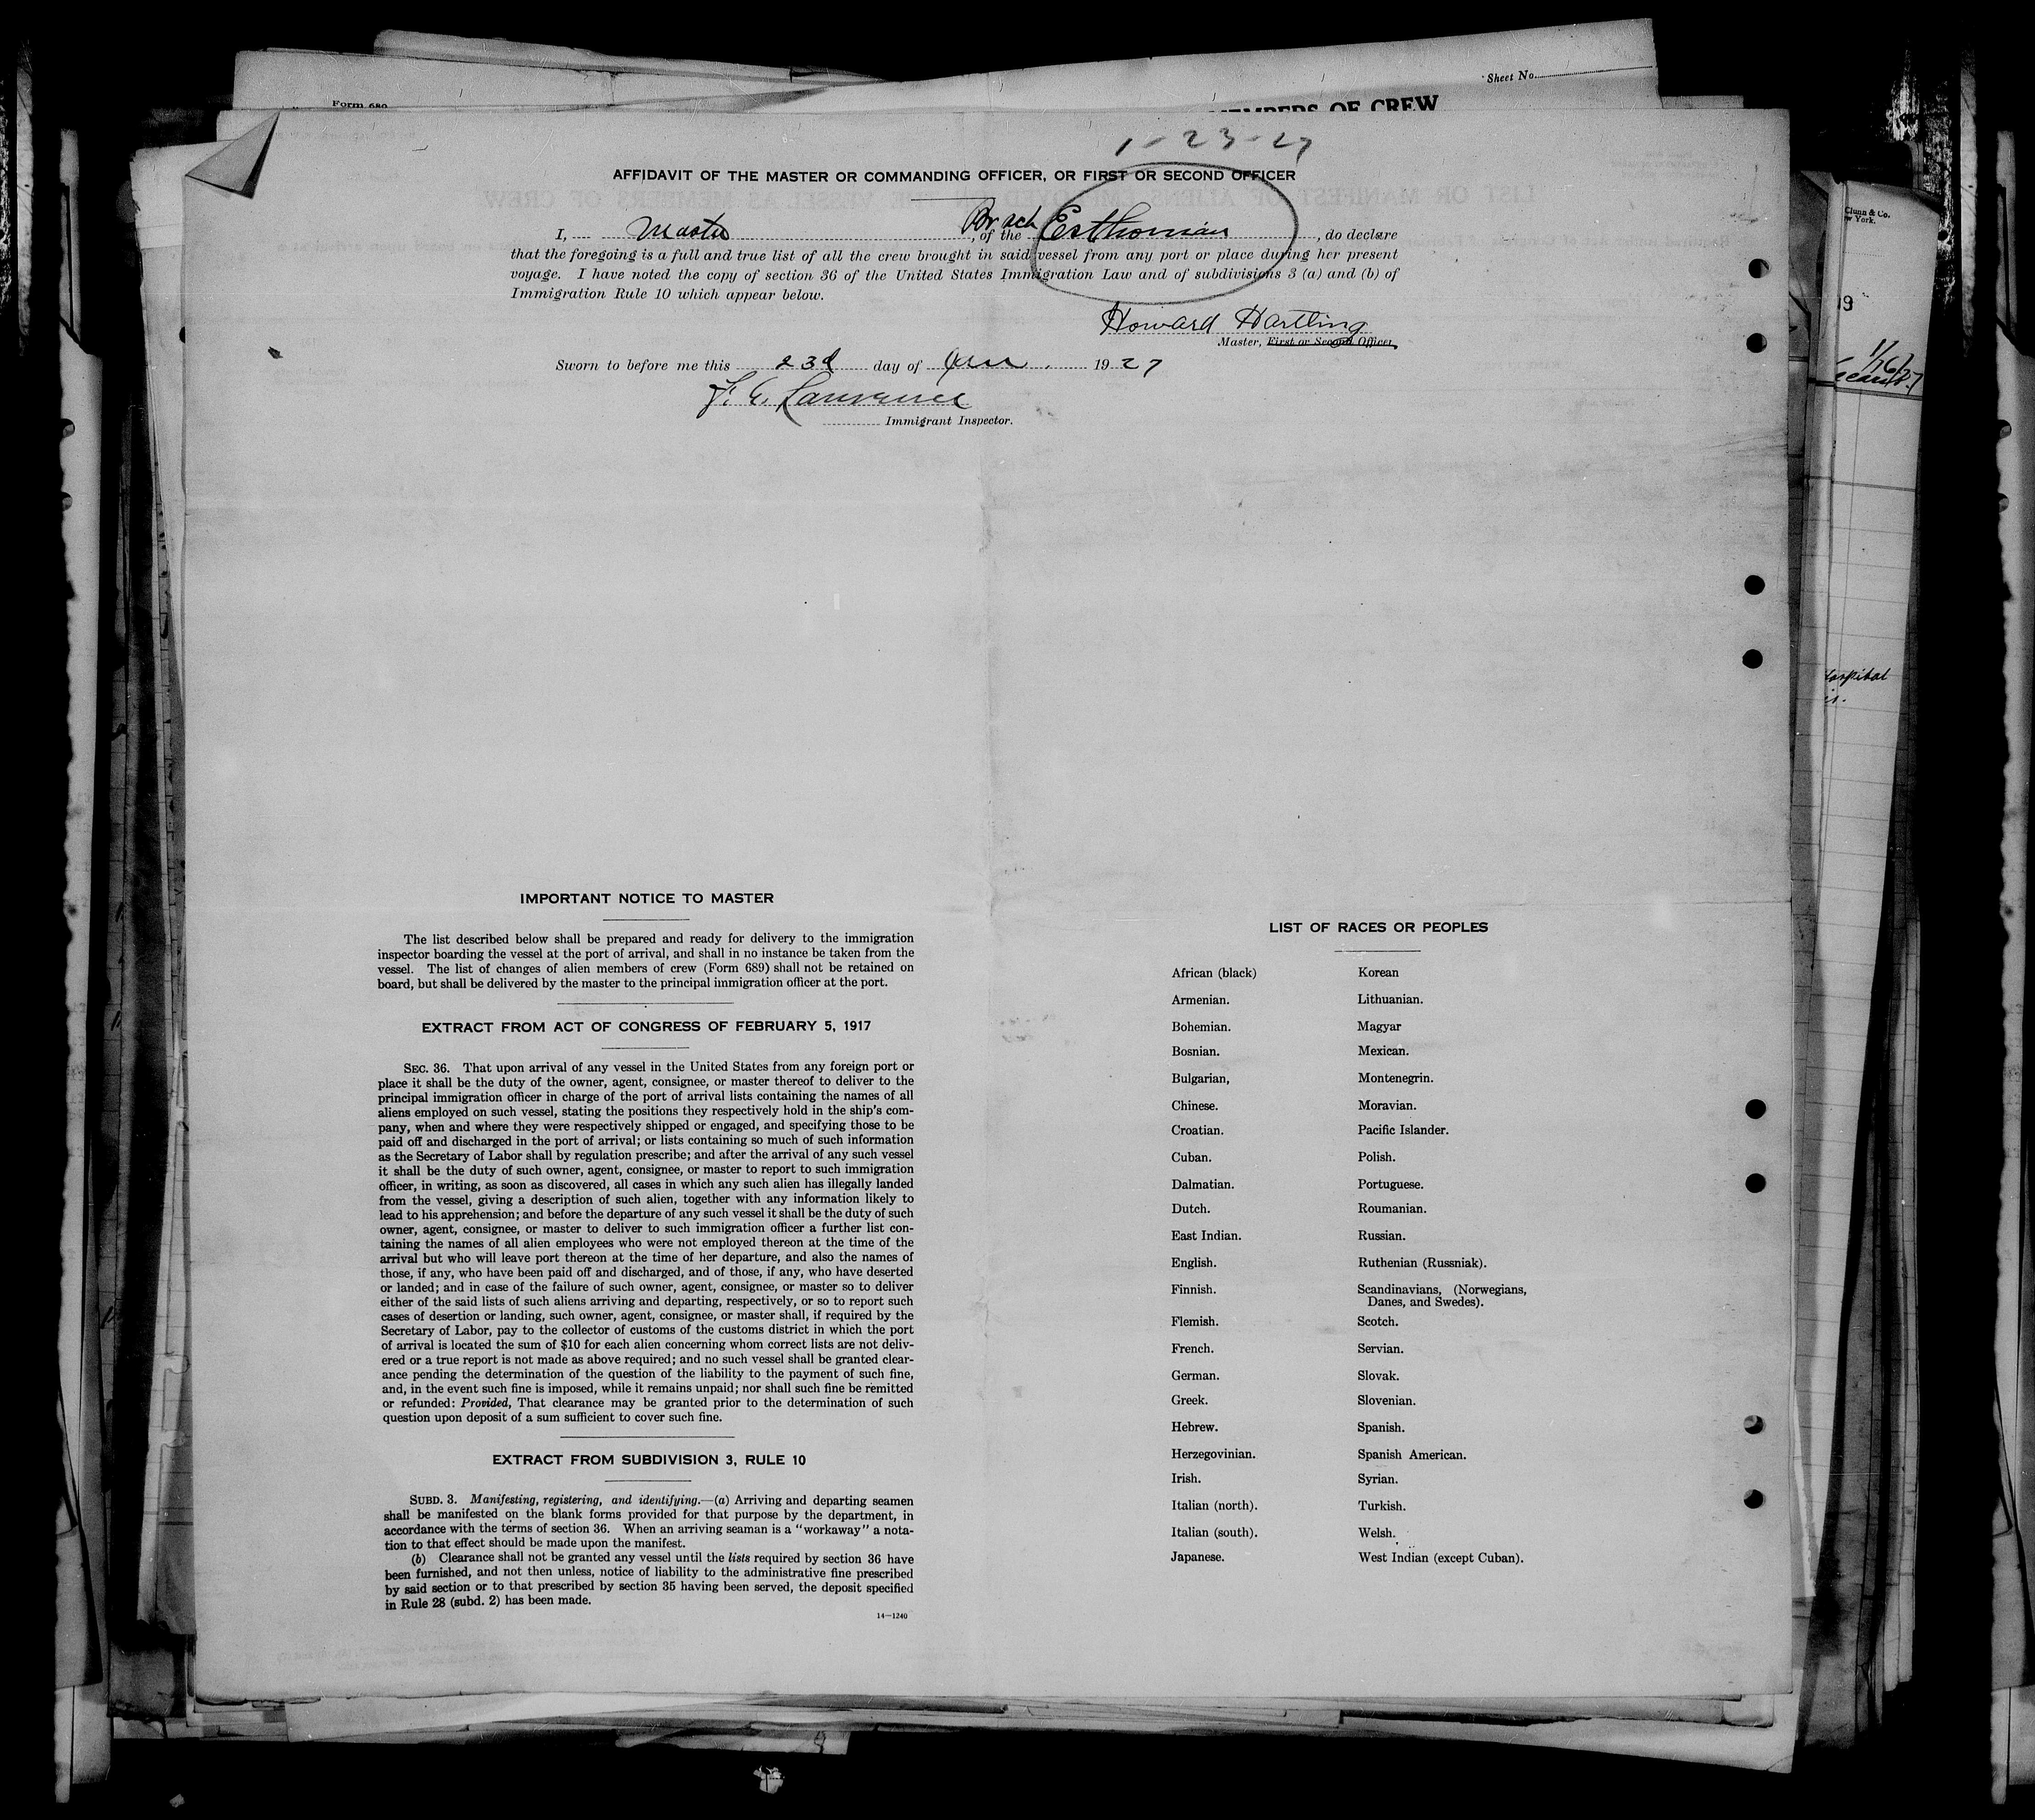 Sheet No.
Form 689
MEMBERS OF CREW
1-23-27
AFFIDAVIT OF THE MASTER OR COMMANDING OFFICER, OR FIRST OR SECOND OFFICER
I, Master, of the Br sch Esthonian, do declare
that the foregoing is a full and true list of all the crew brought in said vessel from any port or place during her present
voyage. I have noted the copy of section 36 of the United States Immigration Law and of subdivisions 3 (a) and (b) of
Immigration Rule 10 which appear below.
Howard Hartling
Master, First or Second Officer.
Sworn to before me this 23d day of Jan. 1927
Immigrant Inspector.
Clunn & Co.
w York.
1/26/27
Hospital
IMPORTANT NOTICE TO MASTER
The list described below shall be prepared and ready for delivery to the immigration
inspector boarding the vessel at the port of arrival, and shall in no instance be taken from the
vessel. The list of changes of alien members of crew (Form 689) shall not be retained on
board, but shall be delivered by the master to the principal immigration officer at the port.
EXTRACT FROM ACT OF CONGRESS OF FEBRUARY 5, 1917
SEC. 36. That upon arrival of any vessel in the United States from any foreign port or
place it shall be the duty of the owner, agent, consignee, or master thereof to deliver to the
principal immigration officer in charge of the port of arrival lists containing the names of all
aliens employed on such vessel, stating the positions they respectively hold in the ship's com-
pany, when and where they were respectively shipped or engaged, and specifying those to be
paid off and discharged in the port of arrival; or lists containing so much of such information
as the Secretary of Labor shall by regulation prescribe; and after the arrival of any such vessel
it shall be the duty of such owner, agent, consignee, or master to report to such immigration
officer, in writing, as soon as discovered, all cases in which any such alien has illegally landed
from the vessel, giving a description of such alien, together with any information likely to
lead to his apprehension; and before the departure of any such vessel it shall be the duty of such
owner, agent, consignee, or master to deliver to such immigration officer a further list con-
taining the names of all alien employees who were not employed thereon at the time of the
arrival but who will leave port thereon at the time of her departure, and also the names of
those, if any, who have been paid off and discharged, and of those, if any, who have deserted
or landed; and in case of the failure of such owner, agent, consignee, or master so to deliver
either of the said lists of such aliens arriving and departing, respectively, or so to report such
cases of desertion or landing, such owner, agent, consignee, or master shall, if required by the
Secretary of Labor, pay to the collector of customs of the customs district in which the port
of arrival is located the sum of $10 for each alien concerning whom correct lists are not deliv-
ered or a true report is not made as above required; and no such vessel shall be granted clear-
ance pending the determination of the question of the liability to the payment of such fine,
and, in the event such fine is imposed, while it remains unpaid; nor shall such fine be remitted
or refunded: Provided, That clearance may be granted prior to the determination of such
question upon deposit of a sum sufficient to cover such fine.
EXTRACT FROM SUBDIVISION 3, RULE 10
SUBD. 3. Manifesting, registering, and identifying.—(a) Arriving and departing seamen
shall be manifested on the blank forms provided for that purpose by the department, in
accordance with the terms of section 36. When an arriving seaman is a "workaway" a nota-
tion to that effect should be made upon the manifest.
(b) Clearance shall not be granted any vessel until the lists required by section 36 have
been furnished, and not then unless, notice of liability to the administrative fine prescribed
by said section or to that prescribed by section 35 having been served, the deposit specified
in Rule 28 (subd. 2) has been made.
14—1240
LIST OF RACES OR PEOPLES
African (black) Korean
Armenian. Lithuanian.
Bohemian. Magyar
Bosnian. Mexican.
Bulgarian, Montenegrin.
Chinese. Moravian.
Croatian. Pacific Islander.
Cuban. Polish.
Dalmatian. Portuguese.
Dutch. Roumanian.
East Indian. Russian.
English. Ruthenian (Russniak).
Finnish. Scandinavians, (Norwegians,
Danes, and Swedes).
Flemish. Scotch.
French. Servian.
German. Slovak.
Greek. Slovenian.
Hebrew. Spanish.
Herzegovinian. Spanish American.
Irish. Syrian.
Italian (north). Turkish.
Italian (south). Welsh.
Japanese. West Indian (except Cuban).